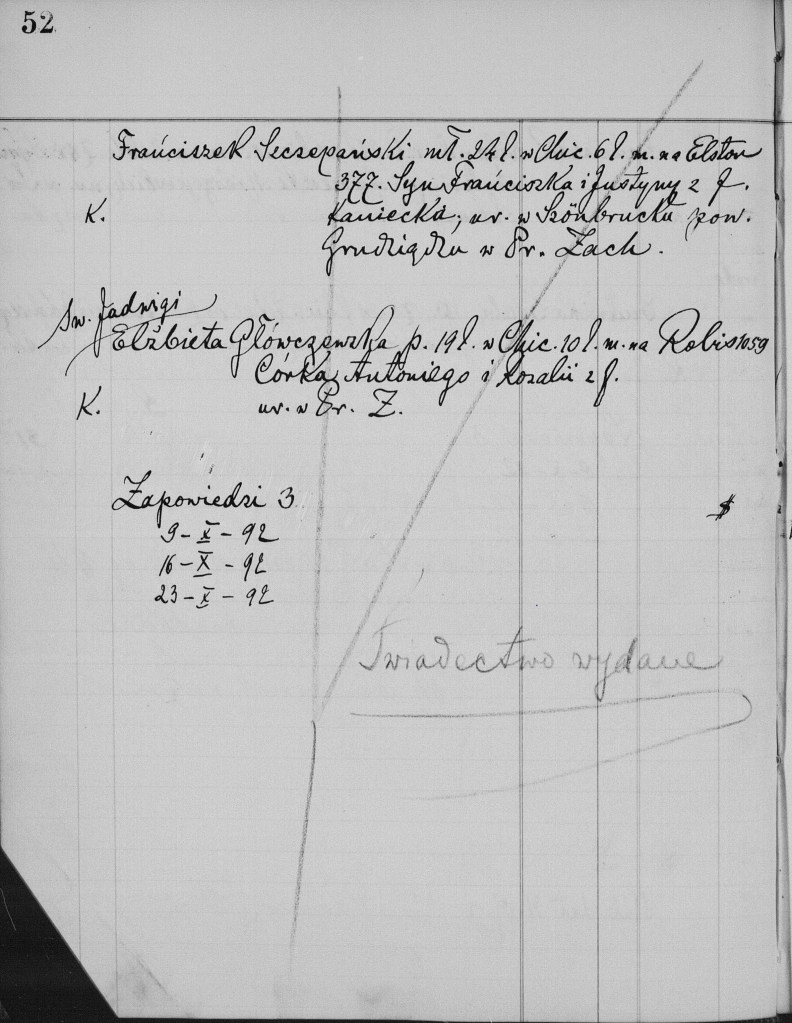 52
Frańciszek Szczepański mł. 24 l. w Chic. 6 l. m. na Elston
377. Syn Frańciszka i Justyny z f.
K. Kaniecka, ur. w Szönbrucku pow.
Grudziądzu w Pr. Zach.
Św. Jadwigi
Elżbieta Główczewska p. 19 l. w Chic. 10 l. m. na Robis 1059
Córka Antoniego i Rozalii z f.
K. ur. w Pr. Z.
Zapowiedzi 3
9 - X - 92
16 - X - 92
23 - X - 92
$
Świadectwo wydane